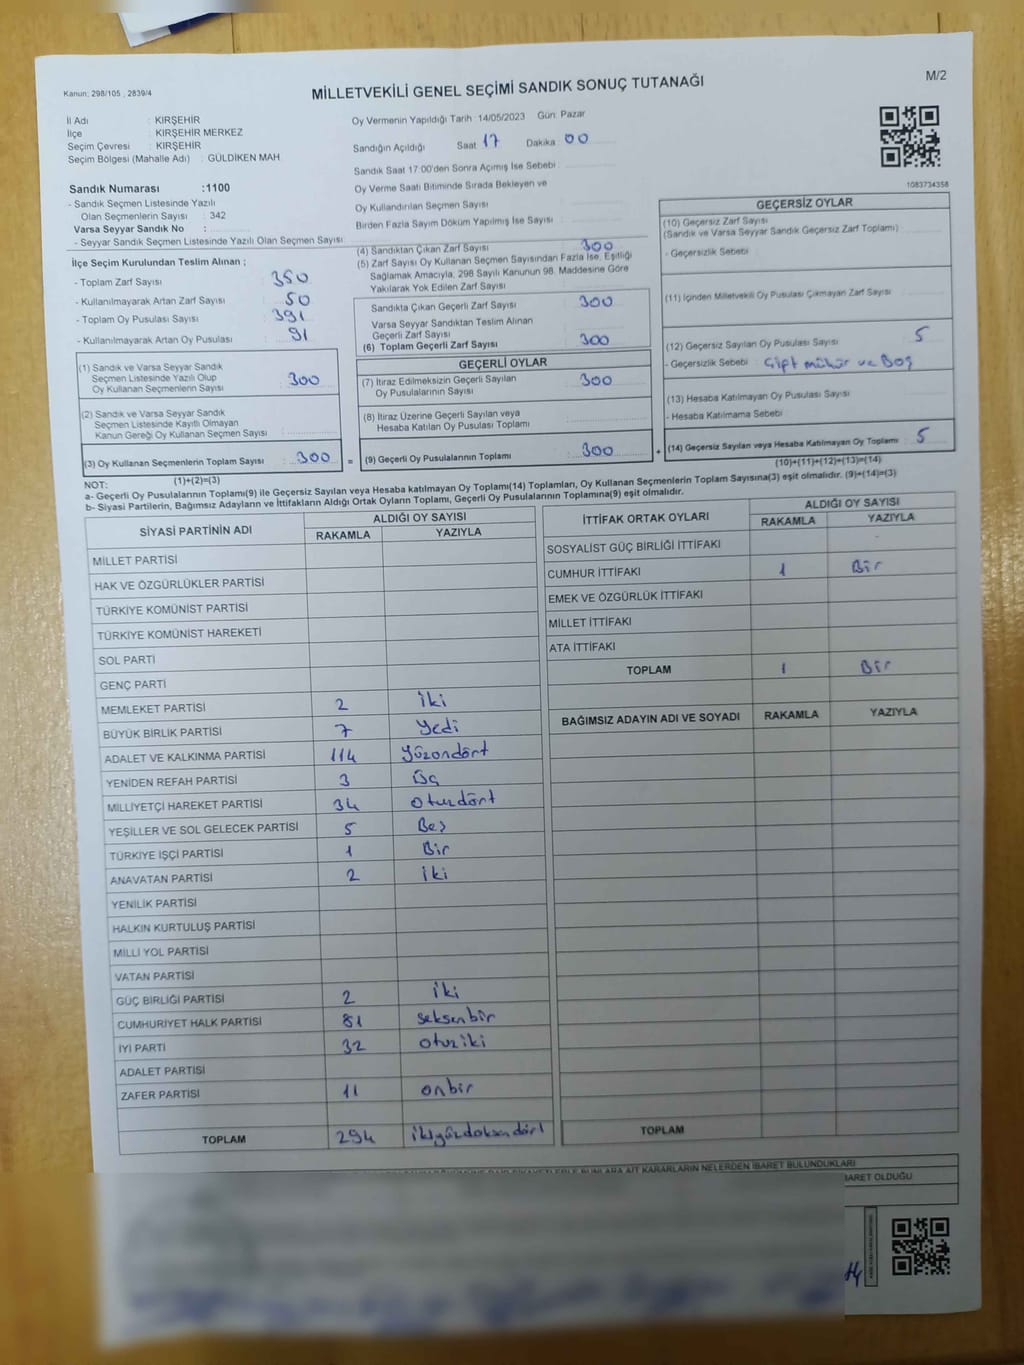 M/2
Kanun: 298/105 , 2839/4
MİLLETVEKİLİ GENEL SEÇİMİ SANDIK SONUÇ TUTANAĞI
İl Adı : KIRŞEHİR
İlçe : KIRŞEHİR MERKEZ
Seçim Çevresi : KIRŞEHİR
Seçim Bölgesi (Mahalle Adı) : GÜLDİKEN MAH
Sandık Numarası :1100
- Sandık Seçmen Listesinde Yazılı
Olan Seçmenlerin Sayısı : 342
Varsa Seyyar Sandık No :
- Seyyar Sandık Seçmen Listesinde Yazılı Olan Seçmen Sayısı
Oy Vermenin Yapıldığı Tarih : 14/05/2023 Gün: Pazar
Sandığın Açıldığı Saat 17 Dakika 00
Sandık Saat 17:00'den Sonra Açımış İse Sebebi
Oy Verme Saati Bitiminde Sırada Bekleyen ve
Oy Kullandırılan Seçmen Sayısı
Birden Fazla Sayım Döküm Yapılmış İse Sayısı
1083734358
İlçe Seçim Kurulundan Teslim Alınan ;
- Toplam Zarf Sayısı : 350
- Kullanılmayarak Artan Zarf Sayısı : 50
- Toplam Oy Pusulası Sayısı : 391
- Kullanılmayarak Artan Oy Pusulası : 91
(1) Sandık ve Varsa Seyyar Sandık
Seçmen Listesinde Yazılı Olup
Oy Kullanan Seçmenlerin Sayısı : 300
(2) Sandık ve Varsa Seyyar Sandık
Seçmen Listesinde Kayıtlı Olmayan
Kanun Gereği Oy Kullanan Seçmen Sayısı :
(3) Oy Kullanan Seçmenlerin Toplam Sayısı : 300
(1)+(2)=(3)
(4) Sandıktan Çıkan Zarf Sayısı 300
(5) Zarf Sayısı Oy Kullanan Seçmen Sayısından Fazla İse, Eşitliği
Sağlamak Amacıyla, 298 Sayılı Kanunun 98. Maddesine Göre
Yakılarak Yok Edilen Zarf Sayısı
Sandıkta Çıkan Geçerli Zarf Sayısı 300
Varsa Seyyar Sandıktan Teslim Alınan
Geçerli Zarf Sayısı
(6) Toplam Geçerli Zarf Sayısı : 300
GEÇERLİ OYLAR
(7) İtiraz Edilmeksizin Geçerli Sayılan
Oy Pusulalarının Sayısı : 300
(8) İtiraz Üzerine Geçerli Sayılan veya
Hesaba Katılan Oy Pusulası Toplamı
= (9) Geçerli Oy Pusulalarının Toplamı : 300
GEÇERSİZ OYLAR
(10) Geçersiz Zarf Sayısı
(Sandık ve Varsa Seyyar Sandık Geçersiz Zarf Toplamı)
- Geçersizlik Sebebi
(11) İçinden Milletvekili Oy Pusulası Çıkmayan Zarf Sayısı
(12) Geçersiz Sayılan Oy Pusulası Sayısı 5
- Geçersizlik Sebebi : Çift mühür ve Boş
(13) Hesaba Katılmayan Oy Pusulası Sayısı
- Hesaba Katılmama Sebebi
+ (14) Geçersiz Sayılan veya Hesaba Katılmayan Oy Toplamı : 5
(10)+(11)+(12)+(13)=(14)
NOT:
a- Geçerli Oy Pusulalarının Toplamı(9) ile Geçersiz Sayılan veya Hesaba katılmayan Oy Toplamı(14) Toplamları, Oy Kullanan Seçmenlerin Toplam Sayısına(3) eşit olmalıdır. (9)+(14)=(3)
b- Siyasi Partilerin, Bağımsız Adayların ve İttifakların Aldığı Ortak Oyların Toplamı, Geçerli Oy Pusulalarının Toplamına(9) eşit olmalıdır.
SİYASİ PARTİNİN ADI ALDIĞI OY SAYISI
RAKAMLA YAZIYLA
MİLLET PARTİSİ
HAK VE ÖZGÜRLÜKLER PARTİSİ
TÜRKİYE KOMÜNİST PARTİSİ
TÜRKİYE KOMÜNİST HAREKETİ
SOL PARTİ
GENÇ PARTİ
MEMLEKET PARTİSİ 2 iki
BÜYÜK BİRLİK PARTİSİ 7 yedi
ADALET VE KALKINMA PARTİSİ 114 Yüzondört
YENİDEN REFAH PARTİSİ 3 Üç
MİLLİYETÇİ HAREKET PARTİSİ 34 oturdört
YEŞİLLER VE SOL GELECEK PARTİSİ 5 Beş
TÜRKİYE İŞÇİ PARTİSİ 1 Bir
ANAVATAN PARTİSİ 2 iki
YENİLİK PARTİSİ
HALKIN KURTULUŞ PARTİSİ
MİLLİ YOL PARTİSİ
VATAN PARTİSİ
GÜÇ BİRLİĞİ PARTİSİ 2 iki
CUMHURİYET HALK PARTİSİ 81 seksenbir
İYİ PARTİ 32 oturiki
ADALET PARTİSİ
ZAFER PARTİSİ 11 onbir
TOPLAM 294 ikiyüzdoksandört
İTTİFAK ORTAK OYLARI ALDIĞI OY SAYISI
RAKAMLA YAZIYLA
SOSYALİST GÜÇ BİRLİĞİ İTTİFAKI
CUMHUR İTTİFAKI 1 Bir
EMEK VE ÖZGÜRLÜK İTTİFAKI
MİLLET İTTİFAKI
ATA İTTİFAKI
TOPLAM 1 Bir
BAĞIMSIZ ADAYIN ADI VE SOYADI RAKAMLA YAZIYLA
TOPLAM
KARARLARIN NELERDEN İBARET BULUNDUKLARI
İBARET OLDUĞU